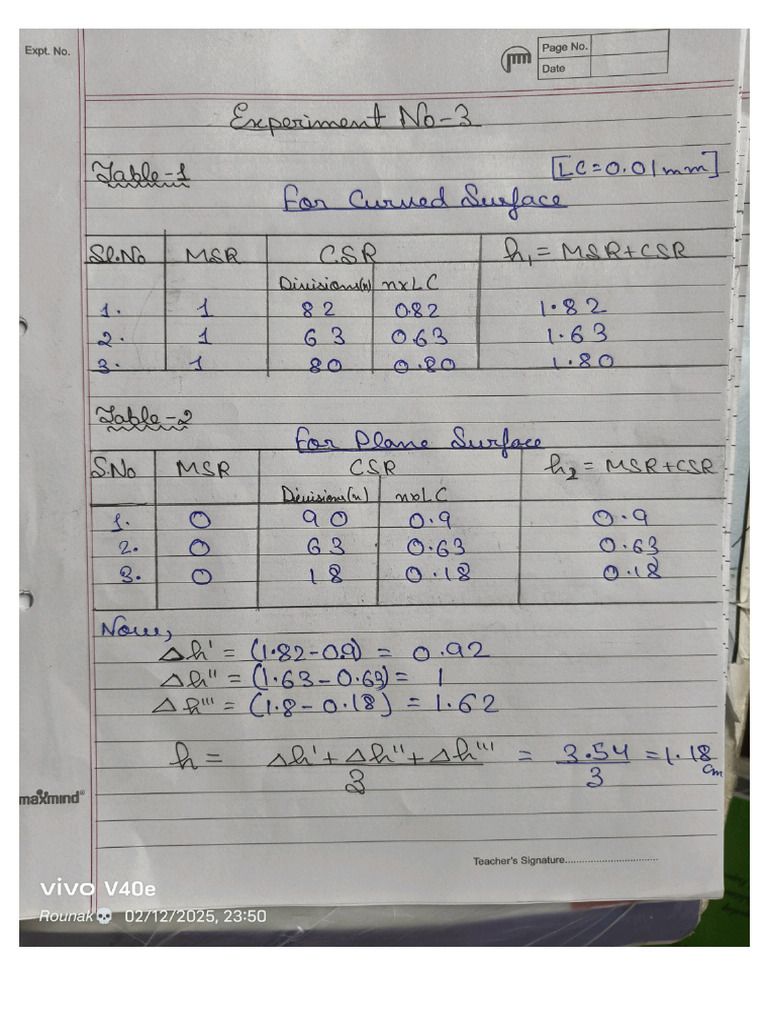 Expt. No.
Page No.
Date
Experiment No-3
Table-1
[LC=0.01mm]
For Curved Surface
Sl.No MSR CSR h₁ = MSR+CSR
Divisions(n) n×LC
1. 1 82 0.82 1.82
2. 1 63 0.63 1.63
3. 1 80 0.80 1.80
Table-2
For Plane Surface
S.No MSR CSR h₂ = MSR+CSR
Divisions(n) n×LC
1. 0 90 0.9 0.9
2. 0 63 0.63 0.63
3. 0 18 0.18 0.18
Now,
Δh' = (1.82-0.9) = 0.92
Δh'' = (1.63-0.63) = 1
Δh''' = (1.8-0.18) = 1.62
h = Δh' + Δh'' + Δh''' / 3 = 3.54 / 3 = 1.18 cm
maxmind
Teacher's Signature................................
vivo V40e
Rounak💀 02/12/2025, 23:50